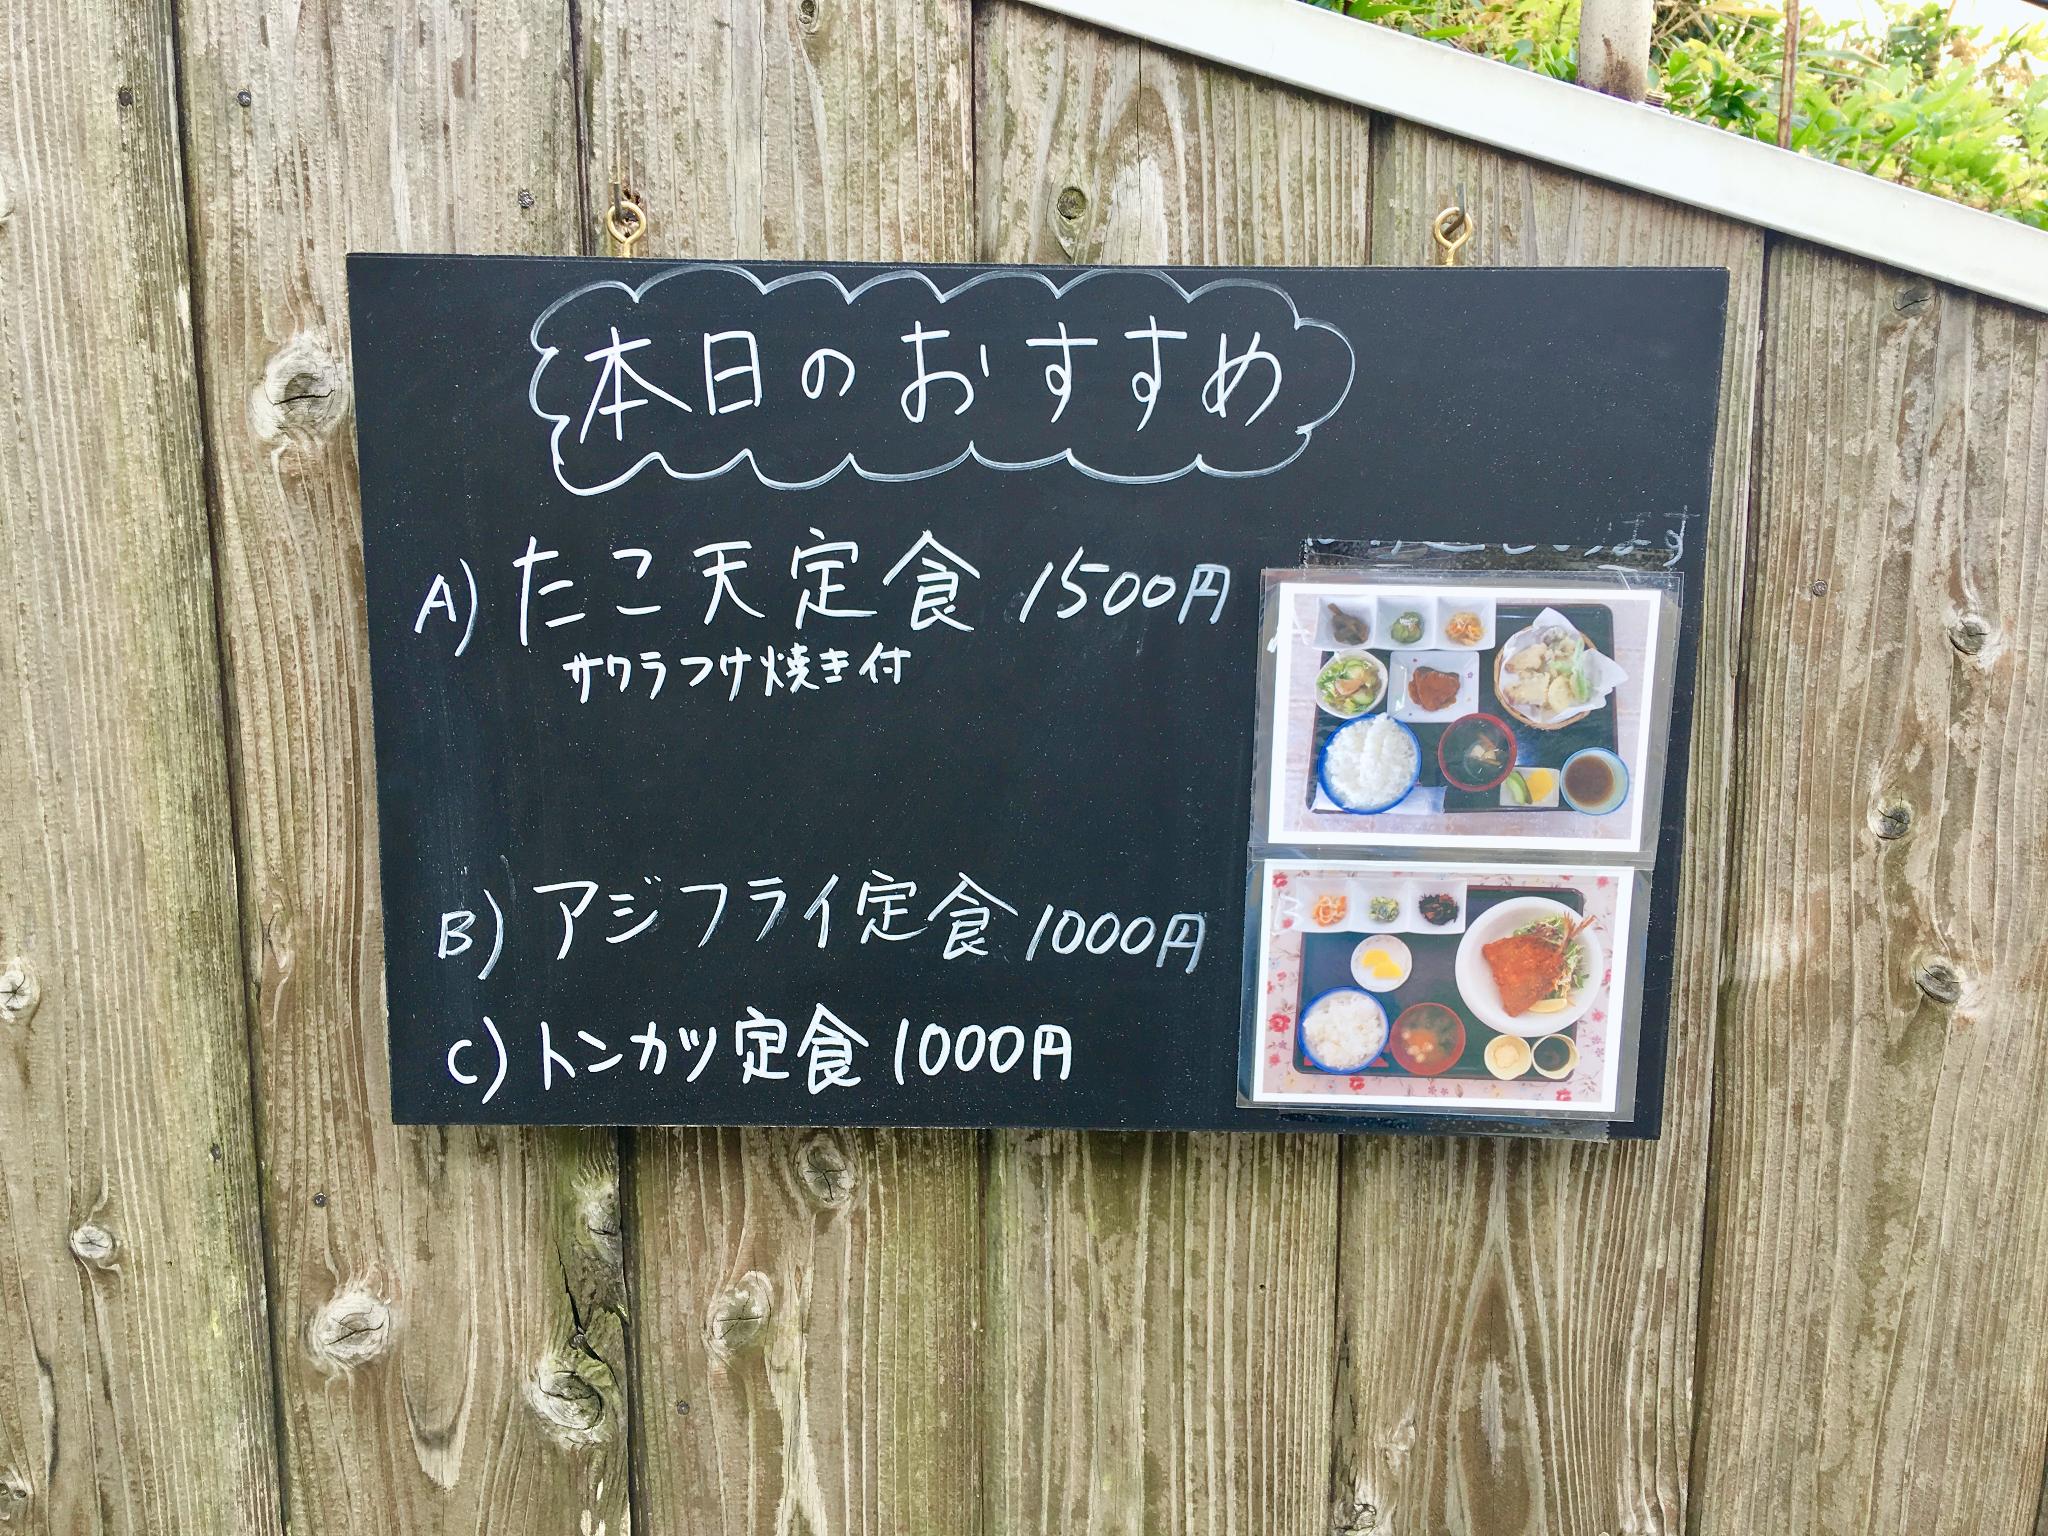 本日のおすすめ
A) たこ天定食 1500円
サワラつけ焼き付
B) アジフライ定食 1000円
C) トンカツ定食 1000円